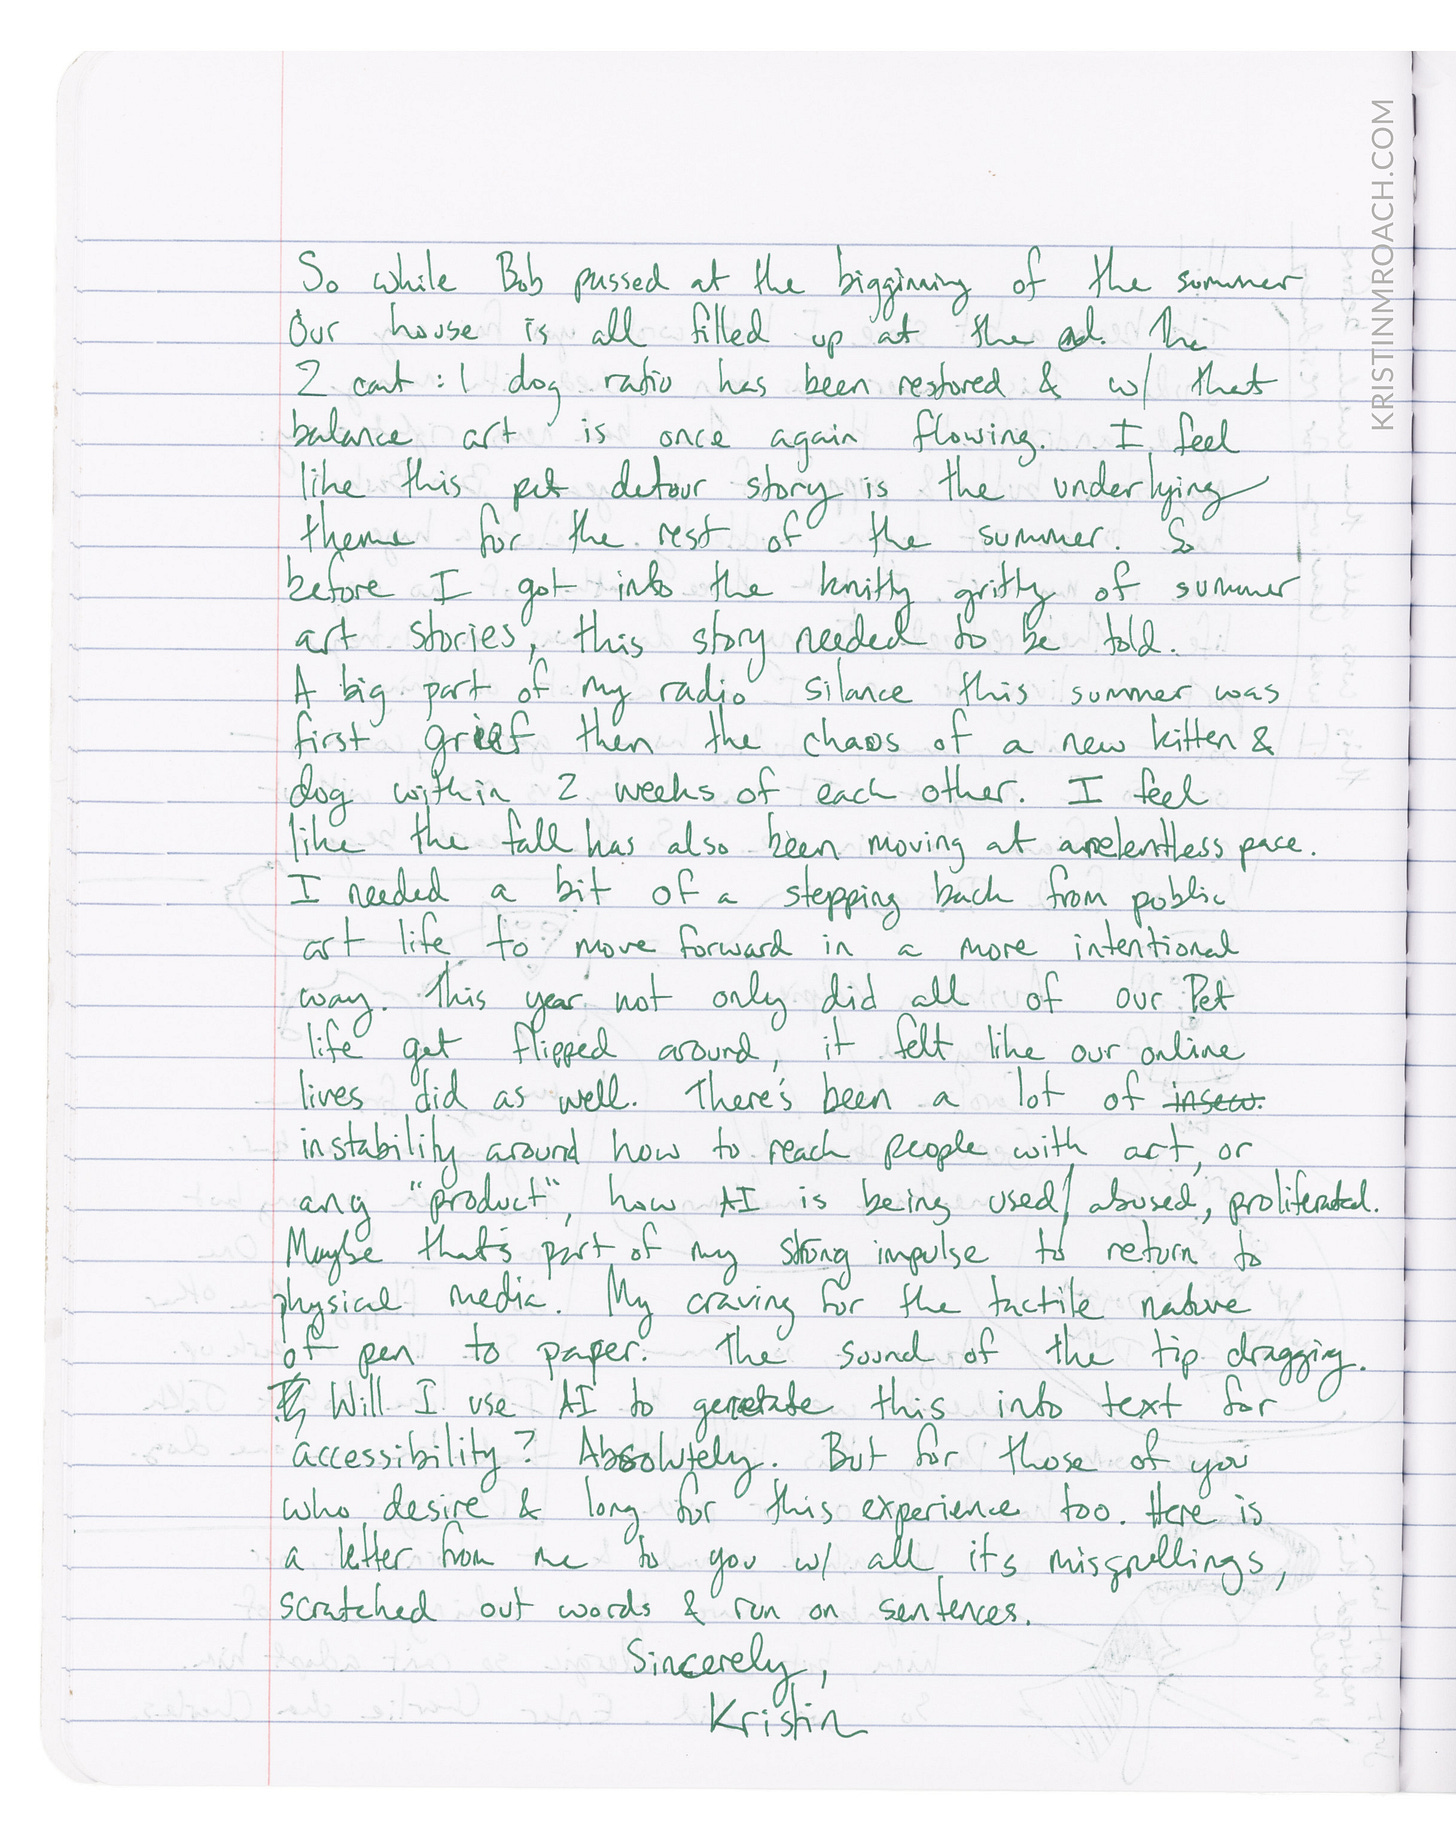 So while Bob passed at the biggining of the summer
Our house is all filled up at the end. The
2 cat : 1 dog ratio has been restored & w/ that
balance art is once again flowing. I feel
like this pet detour story is the underlying
theme for the rest of the summer. So
before I got into the knitty gritty of summer
art stories, this story needed to be told.
A big part of my radio silance this summer was
first grief then the chaos of a new kitten &
dog within 2 weeks of each other. I feel
like the fall has also been moving at a relentless pace.
I needed a bit of a stepping back from public
art life to move forward in a more intentional
way. This year not only did all of our Pet
life get flipped around, it felt like our online
lives did as well. There's been a lot of insecu.
instability around how to reach people with art, or
any "product", how AI is being used/abused, proliferated.
Maybe that's part of my strong impulse to return to
physical media. My craving for the tactile nature
of pen to paper. The sound of the tip dragging.
Will I use AI to generate this into text for
accessibility? Absolutely. But for those of you
who desire & long for this experience too. Here is
a letter from me to you w/ all its misspellings,
scratched out words & run on sentences.
Sincerely,
Kristin
KRISTINMROACH.COM